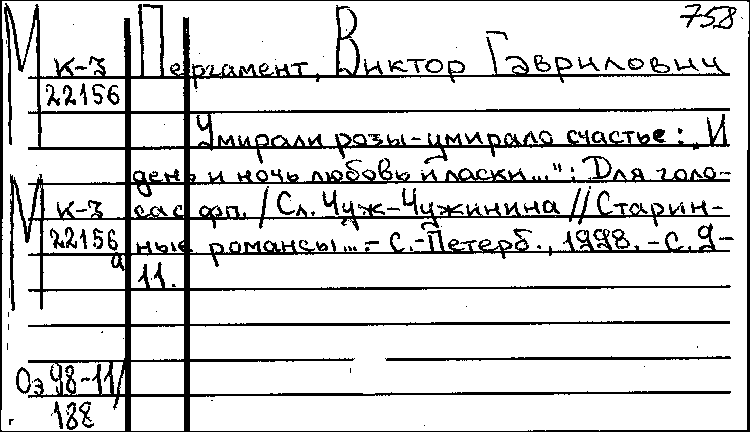 758
М К-3 Пергамент, Виктор Гаврилович
22156
Умирали розы-умирало счастье: „И
день и ночь любовь и ласки...": Для голо-
М К-3 са с фп. / Сл. Чуж-Чужинина // Старин-
22156 ные романсы... - С.-Петерб., 1998. - С. 9-
а 11.
Оэ 98-11/
188